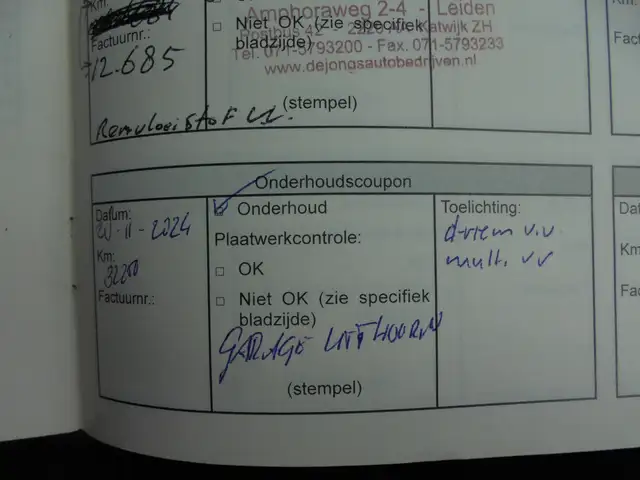 Km:
Factuurnr.:
12.685
□ Niet OK (zie specifiek
bladzijde)
Amphoraweg 2-4 - Leiden
Katwijk ZH
Tel. 071-5793200 - Fax. 071-5793233
www.dejongsautobedrijven.nl
(stempel)
Remvloeistof vv.
Onderhoudscoupon
Datum:
20-11-2024
Km:
32200
Factuurnr.:
Onderhoud
Plaatwerkcontrole:
□ OK
□ Niet OK (zie specifiek
bladzijde)
GARAGE UITHOORN
(stempel)
Toelichting:
d-riem v.v.
mult. vv
Dat
Km
Fact